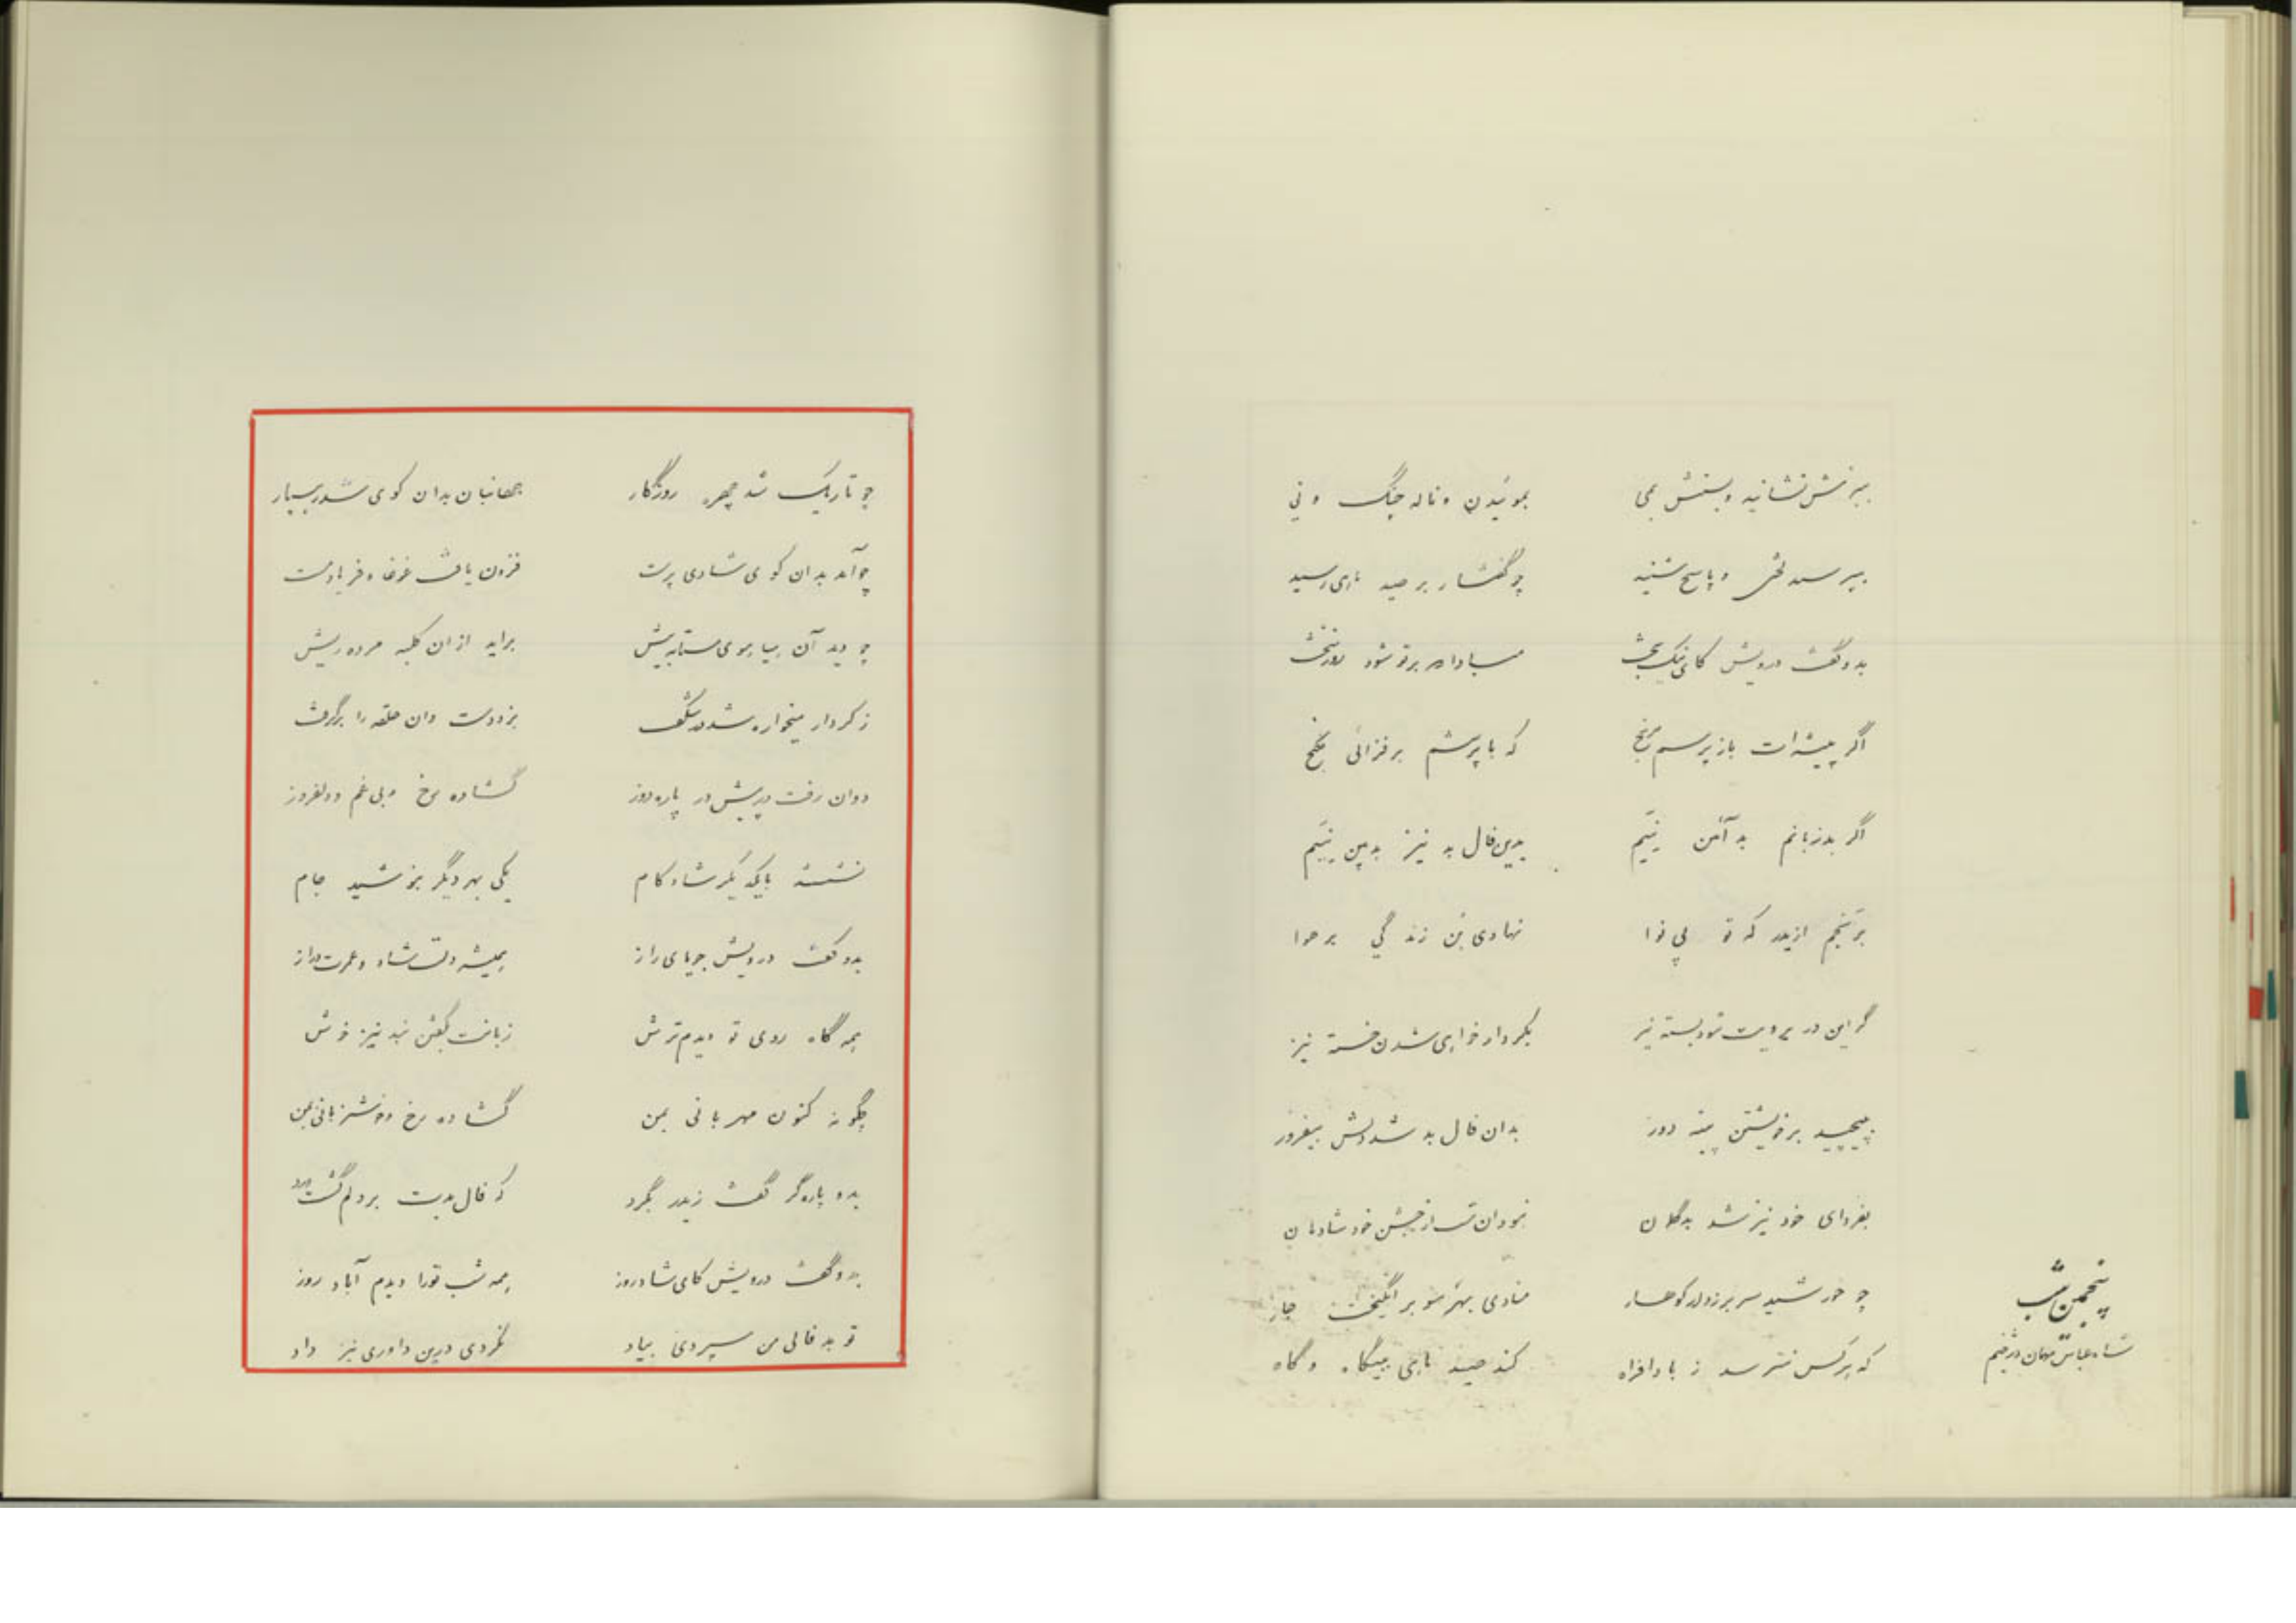 ببزمش نشانید و بستش بمی بموئیدن و ناله چنگ و نی
بپرسید لختی و پاسخ شنید چو گفتار بر صید ماهی رسید
بدو گفت درویش کای نیکبخت مبادا که بر تو شود روز سخت
اگر پیشه‌ات باز پرسم مرنج که با پرسشم بر فزائی بگنج
اگر بدزبانم بد آئین نیَم بدین فال بد نیز بدبین نیَم
برنجم ازیدر که تو بی نوا نهادی بُن زندگی بر هوا
گر این در برویت شود بسته نیز بکردار خواهی شدن خسته نیز
بپیچید بر خویشتن پینه دوز بدان فال بد شد دلش
بفردای خود نیز شد بدگمان نبود آن شب از جشن خود شادمان
پنجمین شب
شاه عباس مهمان
چو خورشید سر بر زد از کوهسار منادی بهر سو بر انگیخت جار
که هر کس نترسد ز بادافراه کند صید ماهی بیگاه و گاه
چو تاریک شد چهره روزگار جهانبان بدان کوی شد رهسپار
چو آمد بدان کوی شادی پرست فزون یافت غوغا و فریاد مست
چو دید آن هیاهوی مستانه بیش برآید از آن کلبه مرده ریش
ز کردار میخواره شد در شگفت بزد دست و آن حلقه را بر گرفت
دوان رفت در پیش در پاره دوز گشاده رخ و بی غم و دلفروز
نشستند با یکدیگر شادکام یکی بهر دیگر بنوشید جام
بدو گفت درویش جویای راز همیشه دلت شاد و عمرت دراز
همه گاه روی تو دیدم ترش زبانت بگفتن نبد نیز خوش
چگونه کنون مهربانی بمن گشاده رخ و خوشزبانی بمن
بدو پاره‌گر گفت زیدر بگرد که فال بدت بر دلم گشت درد
بدو گفت درویش کای شادروز همه شب تورا دیدم آباد روز
تو بد فالی من سپردی بیاد نکردی درین داوری نیز داد